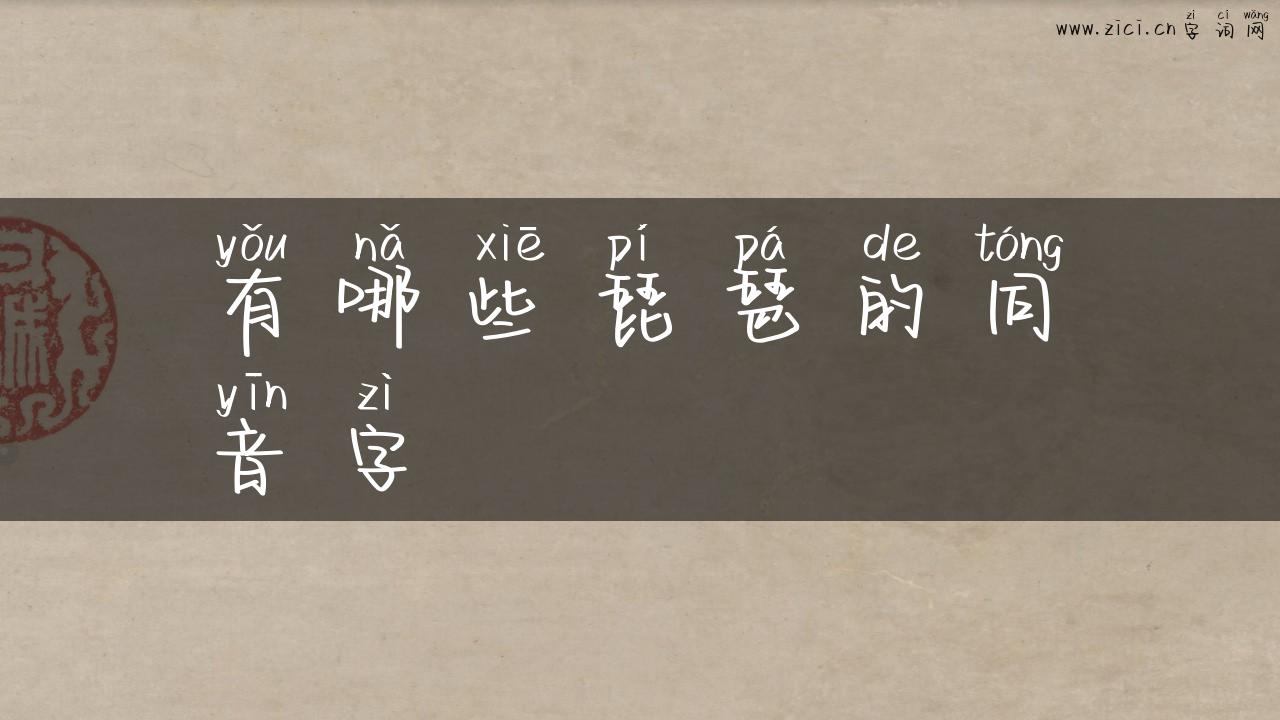 zì cí wǎng
www.zici.cn 字词网
yǒu nǎ xiē pí pá de tóng
有哪些琵琶的同
yīn zì
音字